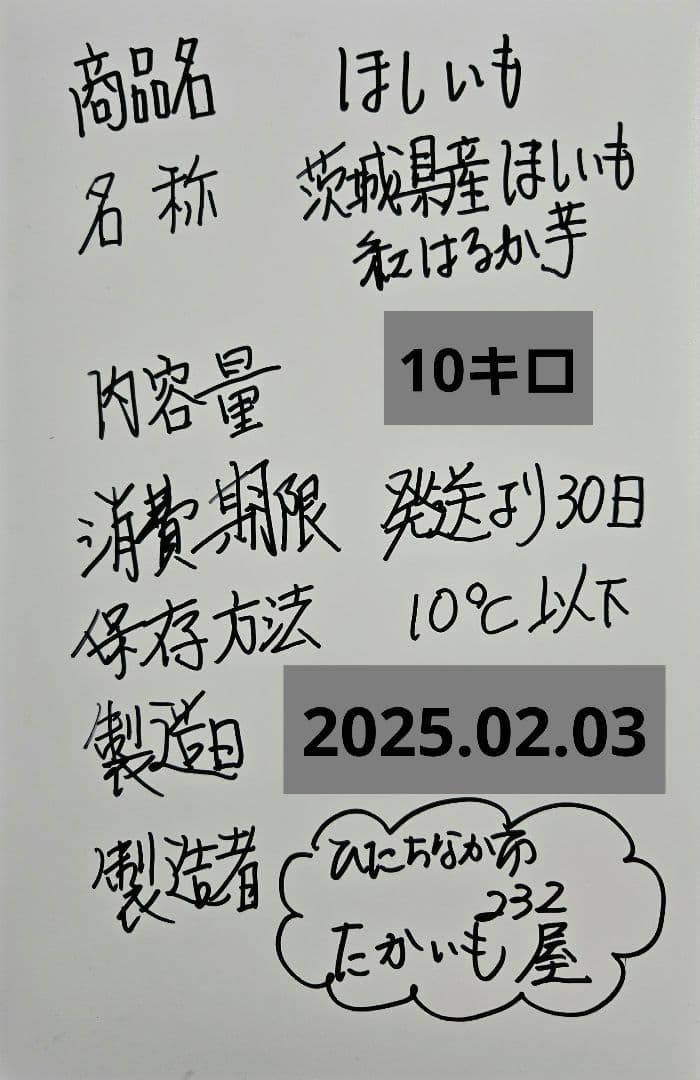 商品名 ほしいも
名称 茨城県産ほしいも
紅はるか芋
内容量 10キロ
消費期限 発送より30日
保存方法 10℃以下
製造日 2025.02.03
製造者 ひたちなか市
232
たかいも屋